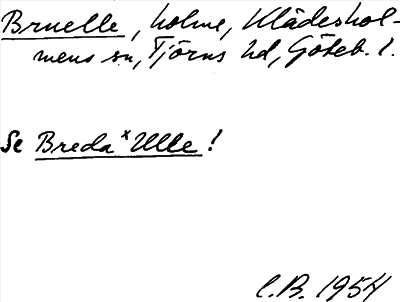 Bruelle, holme, Klådeshol-
mens sn, Tjörns hd, Göteb. l.
Se Breda x Ulle!
C.B. 1954